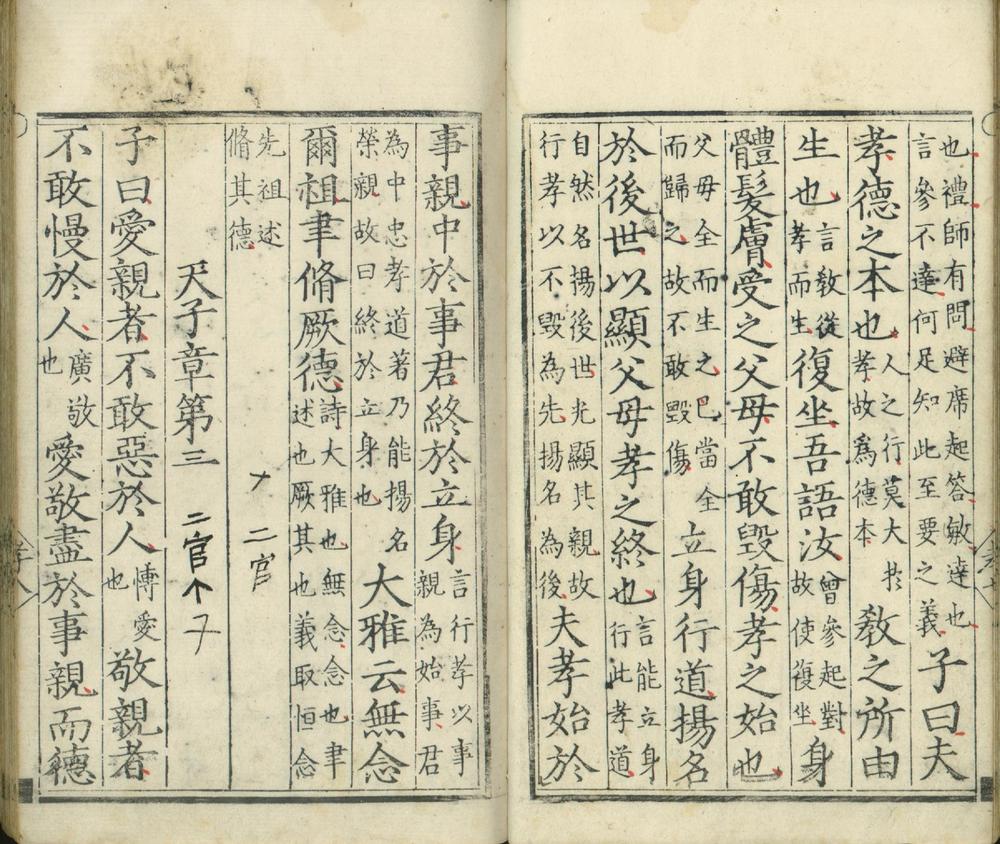 也禮師有問避席起答敏達也言參不達何足知此至要之義子曰夫
孝德之本也人之行莫大扵孝故爲德本教之所由
生也言教從孝而生復坐吾語汝曾參起對故使復坐身
體髮膚受之父母不敢毀傷孝之始也
父母全而生之巳當全而歸之故不敢毀傷立身行道揚名
於後世以顯父母孝之終也言能立身行此孝道
自然名揚後世光顯其親故行孝以不毀為先揚名為後夫孝始於
事親中於事君終於立身言行孝以事親為始事君
為中忠孝道著乃能揚名榮親故曰終於立身也大雅云無念
爾祖聿脩厥德詩大雅也無念念也聿述也厥其也義取恒念
先祖述脩其德
二官
天子章第三
二官
子曰愛親者不敢惡於人博愛也敬親者
不敢慢於人廣敬也愛敬盡於事親而德